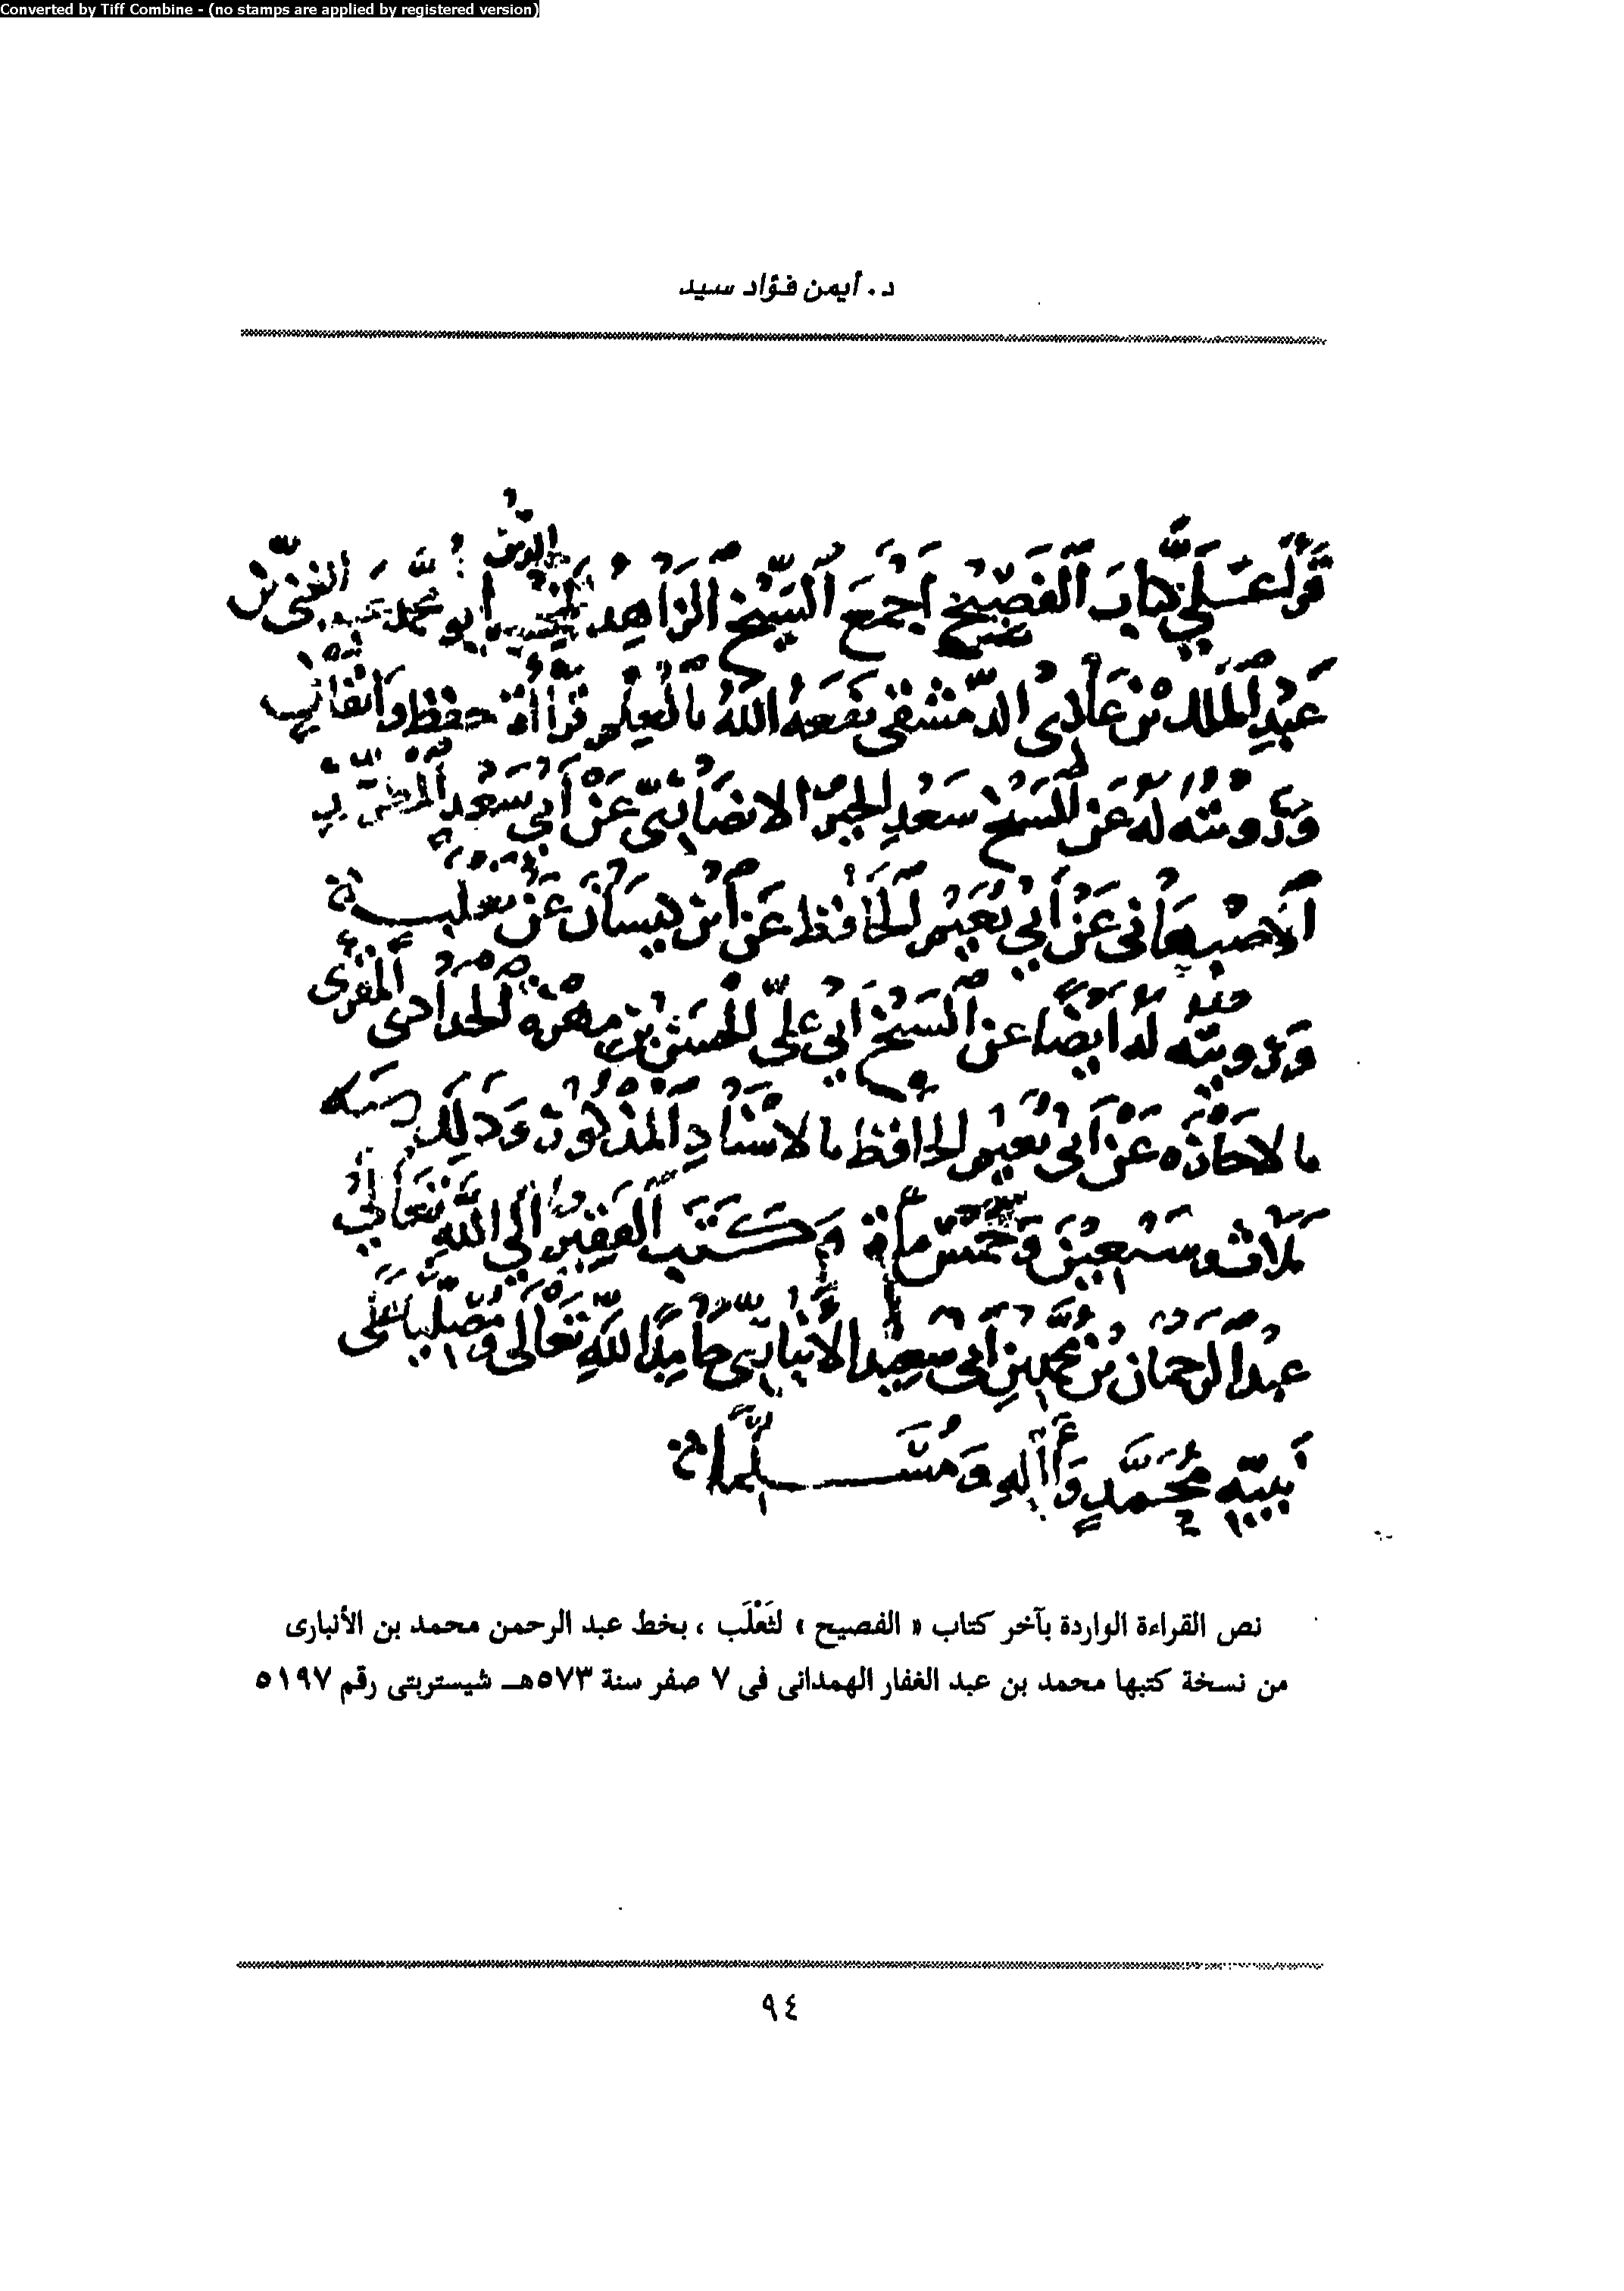 Converted by Tiff Combine - (no stamps are applied by registered version)
د. أيمن فؤاد سيد
قرأ عَلَيَّ كتابَ الفَصِيحِ أجْمَعَ الشَّيْخُ الزَّاهِدُ الدين أبو محمد عبد الغنى بن
عَبْدِ الملك بْن الدّمشقى نَفَعَهُ اللهُ بالعِلْمِ قِراأةَ حفظٍ واتقانٍ
وَرَوَيْتُهُ لَهُ عَنِ الشَّيْخِ سَعْدِ الخير الانصَاريّ عَنْ أبي سَعْدٍ المُطَرِّز
الأصْبهَانى عَنْ أبي نُعَيْمٍ الحَافظِ عَنِ ابْن كيسَانَ عَنْ ثعلب
وَرَوَيتُه لَه أيضًا عنِ الشَّيْخِ أبي علىّ الحسَن بْن الحدادِ المقرى
بالاجَازَةِ عَنْ أبي نُعَيْمٍ الحافظ بالاسْنَادِ المَذْكُورِ وَذَلِكَ سَنَة
ثَلاثٍ وسَبْعِيْنَ وَخَمْسِ مِاْئةٍ وَكَتَبَ الفَقِيْرُ إلَى اللَّهِ تَعَالَى
عَبْدُ الرحمَان بْن مُحمَّدِ بْنِ أَبي سَعِيْدٍ الأَنْبَارِيّ حَامِدًا للَّهِ تَعَالَى ومُصَلّيًا عَلَى
نَبيّه مُحَمَّدٍ وَاآلِهِ وَمُسَلِّمًا
نص القراءة الواردة بآخر كتاب « الفصيح » لثَعْلَب ، بخط عبد الرحمن محمد بن الأنبارى
من نسخة كتبها محمد بن عبد الغفار الهمدانى فى ٧ صفر سنة ٥٧٣هـ شيستربتى رقم ٥١٩٧
٩٤